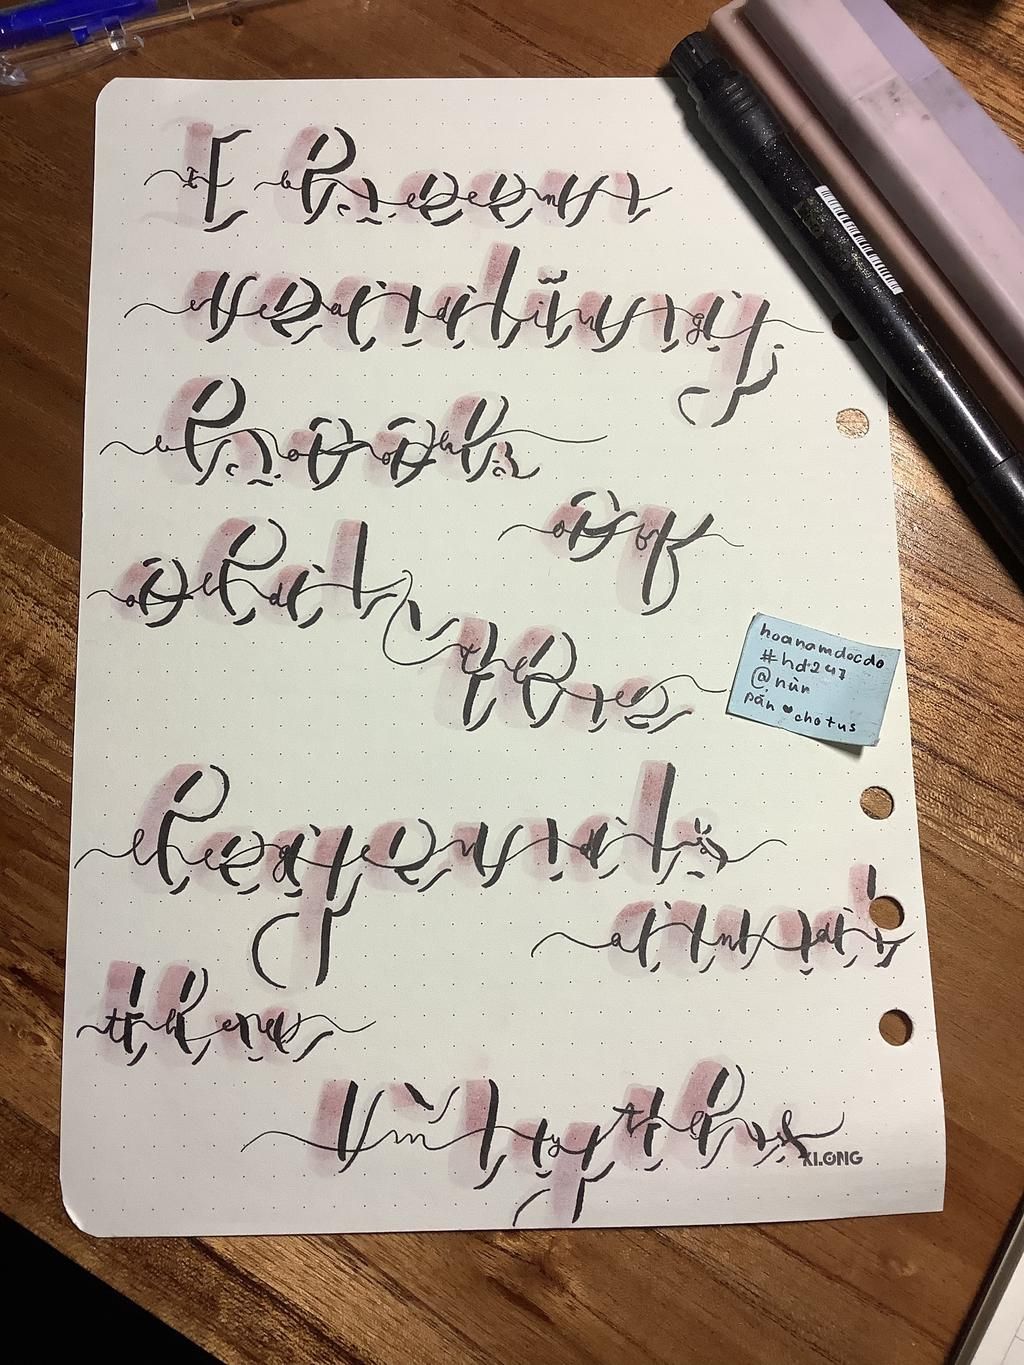 I been
reading
books
of
old
the
legends
and
the
myths
hoanamdocdo
#hd247
@nùn
pán ♥ chotus
KLONG